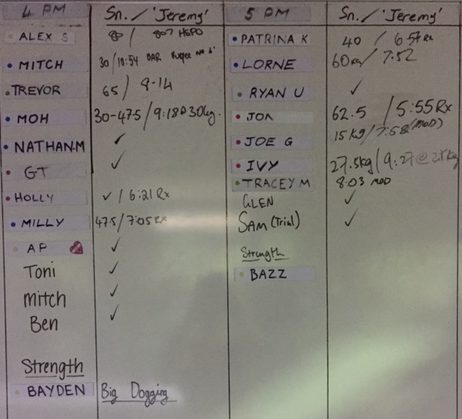 4 PM Sn. / 'Jeremy'
ALEX S 80 / HSPO
MITCH 30 / 10:54 BAR
TREVOR 65 / 9-14
MOH 30-47.5 / 9:18 @ 30kg.
NATHAN.M ✓
GT ✓
HOLLY ✓ / 6:21 Rx
MILLY 47.5 / 7:05 Rx
AP ✓
Toni ✓
mitch ✓
Ben ✓
Strength
BAYDEN Big Dogging
5 PM Sn. / 'Jeremy'
PATRINA K 40 / 6:57 Rx
LORNE 60kg / 7:52
RYAN U ✓
JON 62.5 / 5:55 Rx
JOE G 15kg / 7:58 (MOD)
IVY 27.5kg / 9:27 @
TRACEY M 8:03 MOD
GLEN ✓
SAM (Trial) ✓
Strength
BAZZ